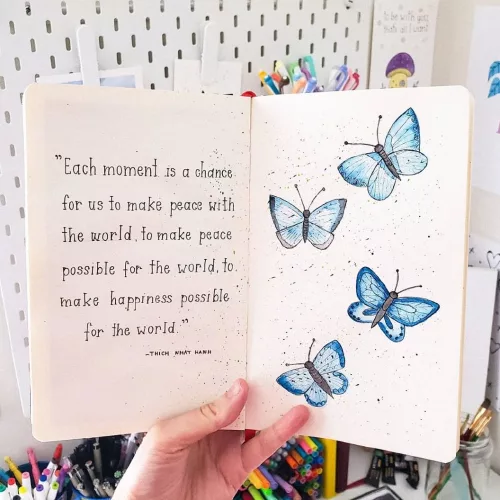 to be with you
that's all I want
"Each moment is a chance
for us to make peace with
the world, to make peace
possible for the world, to
make happiness possible
for the world."
-THICH NHAT HANH